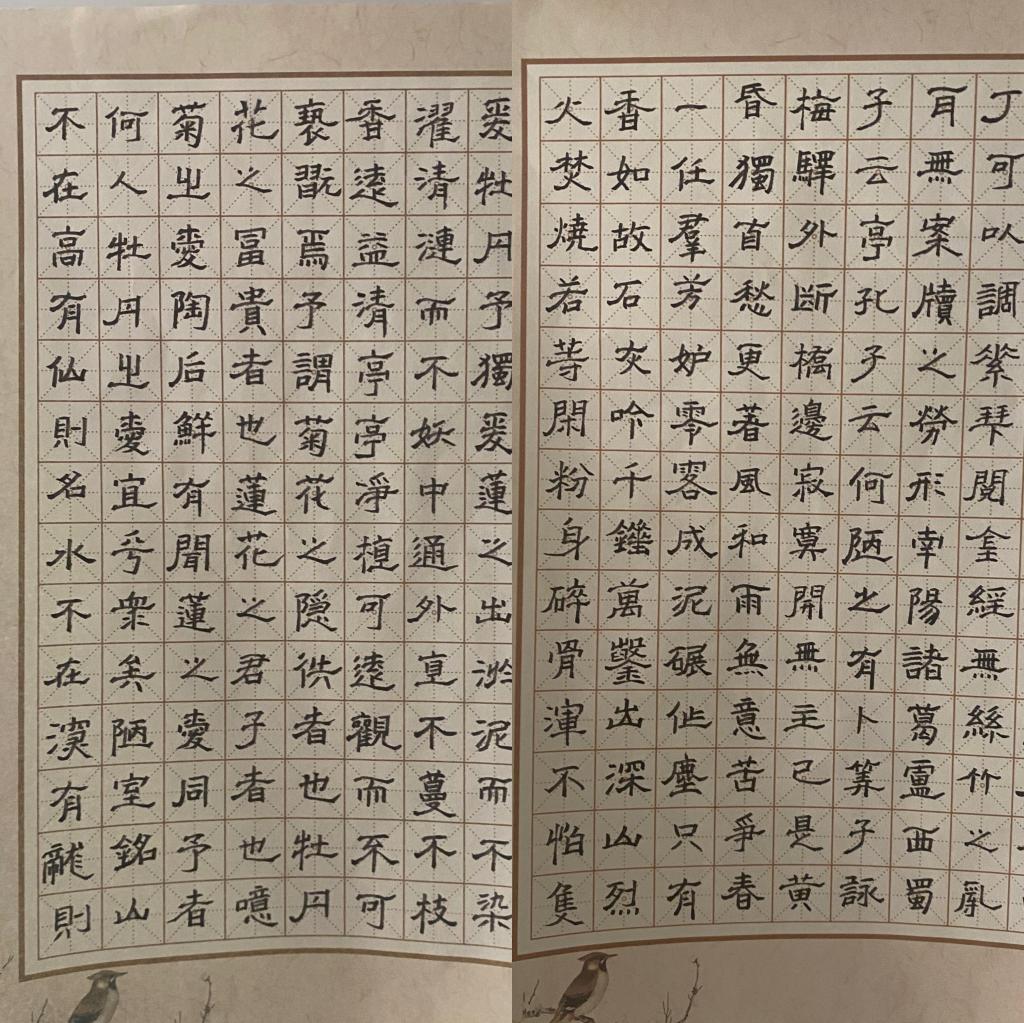 愛牡丹予獨愛蓮之出淤泥而不染
濯清漣而不妖中通外直不蔓不枝
香遠益清亭亭淨植可遠觀而不可
褻翫焉予謂菊花之隠佚者也牡丹
花之富貴者也蓮花之君子者也噫
菊之愛陶后鮮有聞蓮之愛同予者
何人牡丹之愛宜乎衆矣陋室銘山
不在高有仙則名水不在深有龍則
丁可以調素琴閱金經無絲竹之亂
耳無案牘之勞形南陽諸葛廬西蜀
子云亭孔子云何陋之有卜算子詠
梅驛外斷橋邊寂寞開無主已是黄
昏獨自愁更著風和雨無意苦爭春
一任羣芳妒零落成泥碾作塵只有
香如故石灰吟千鎚萬鑿出深山烈
火焚燒若等閑粉身碎骨渾不怕隻